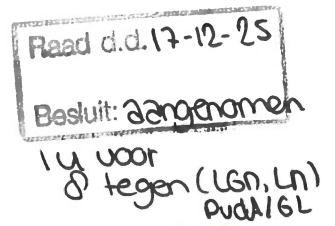 Raad d.d. 17-12-25
Besluit: aangenomen
14 voor
8 tegen (LGn, Ln)
PvdA/GL